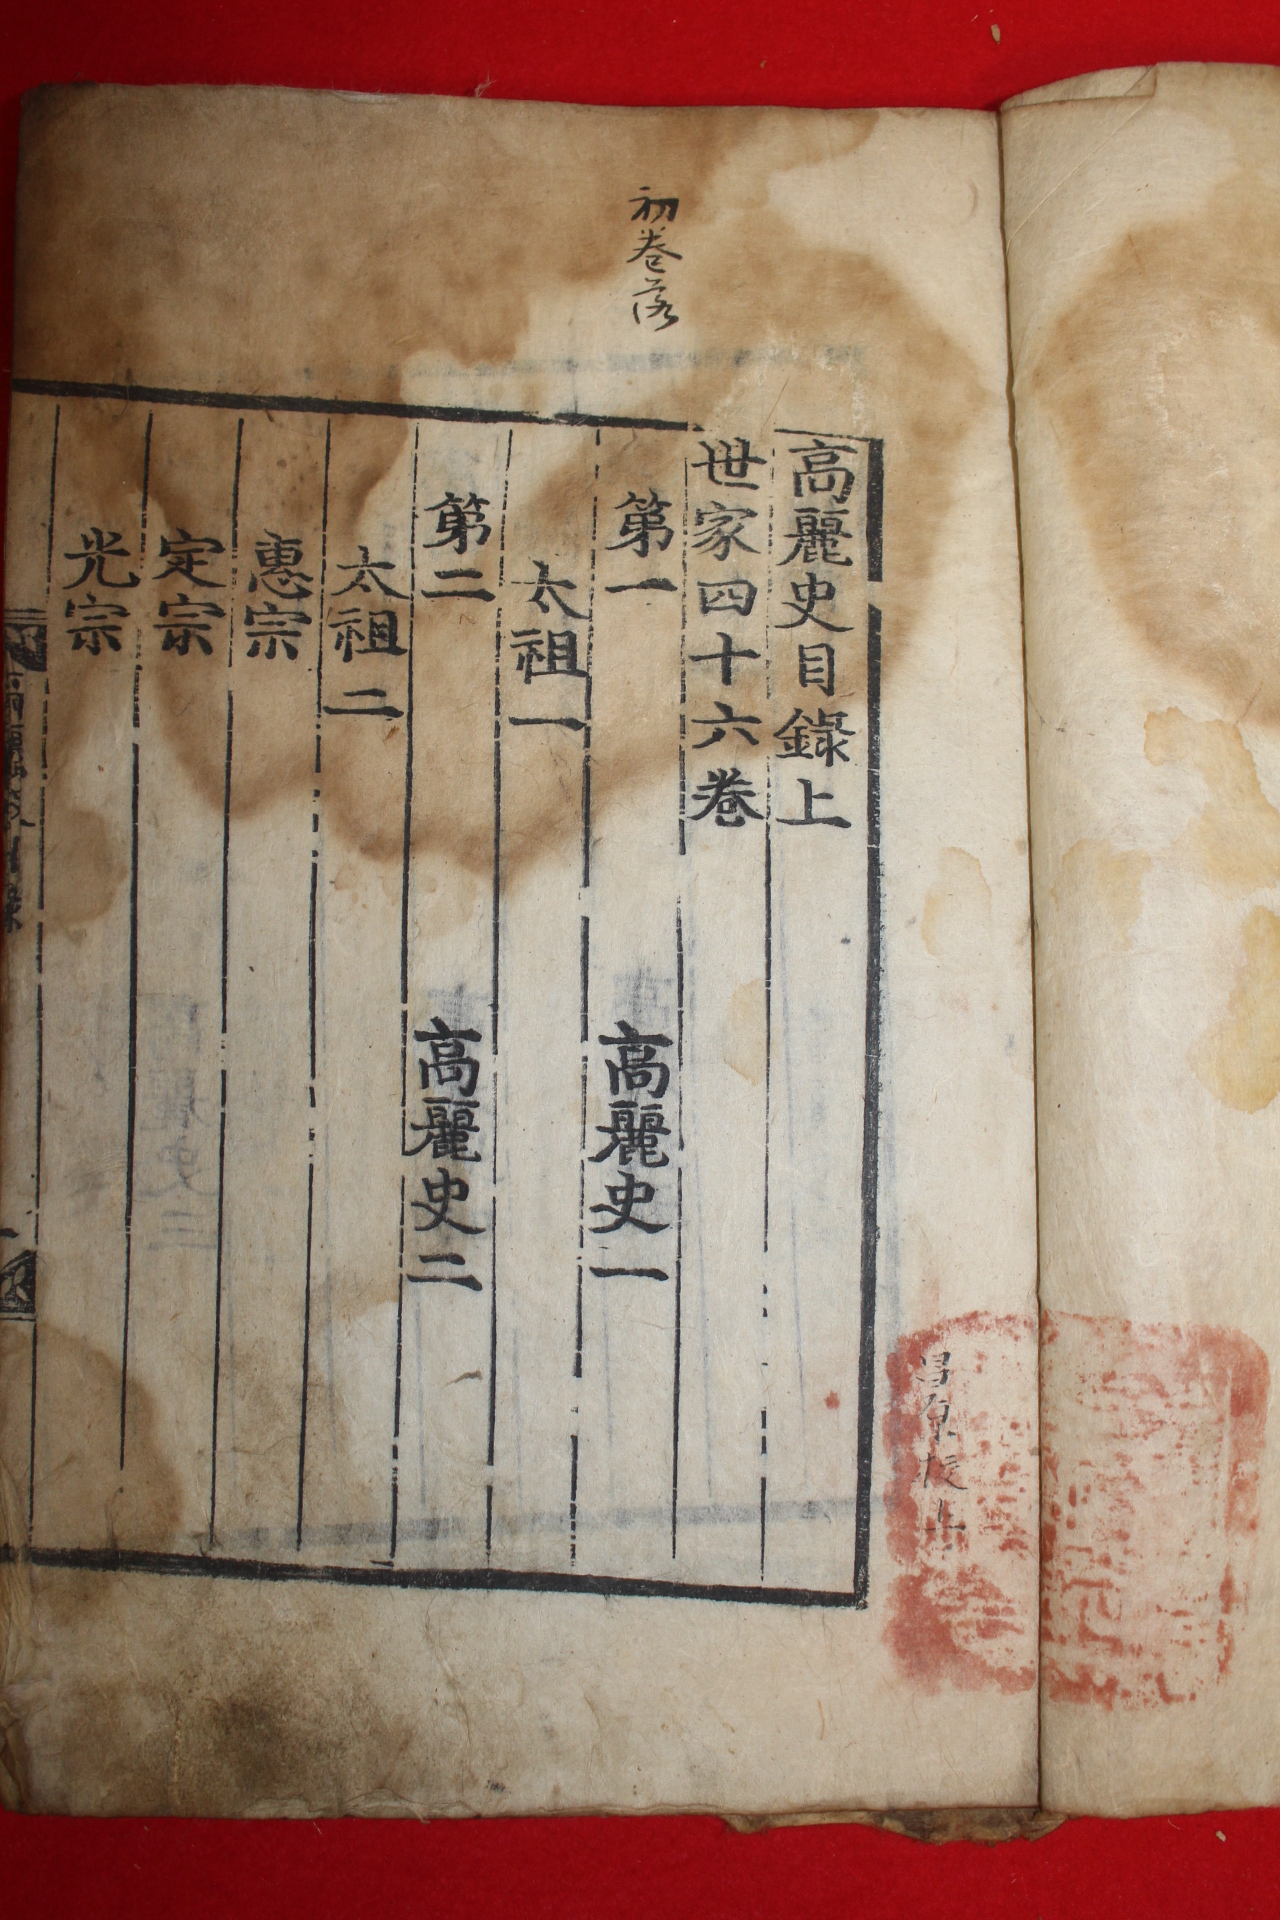 初卷落
高麗史目錄上
世家四十六卷
第一 高麗史一
太祖一
第二 高麗史二
太祖二
惠宗
定宗
光宗
高麗史目錄
昌原校上